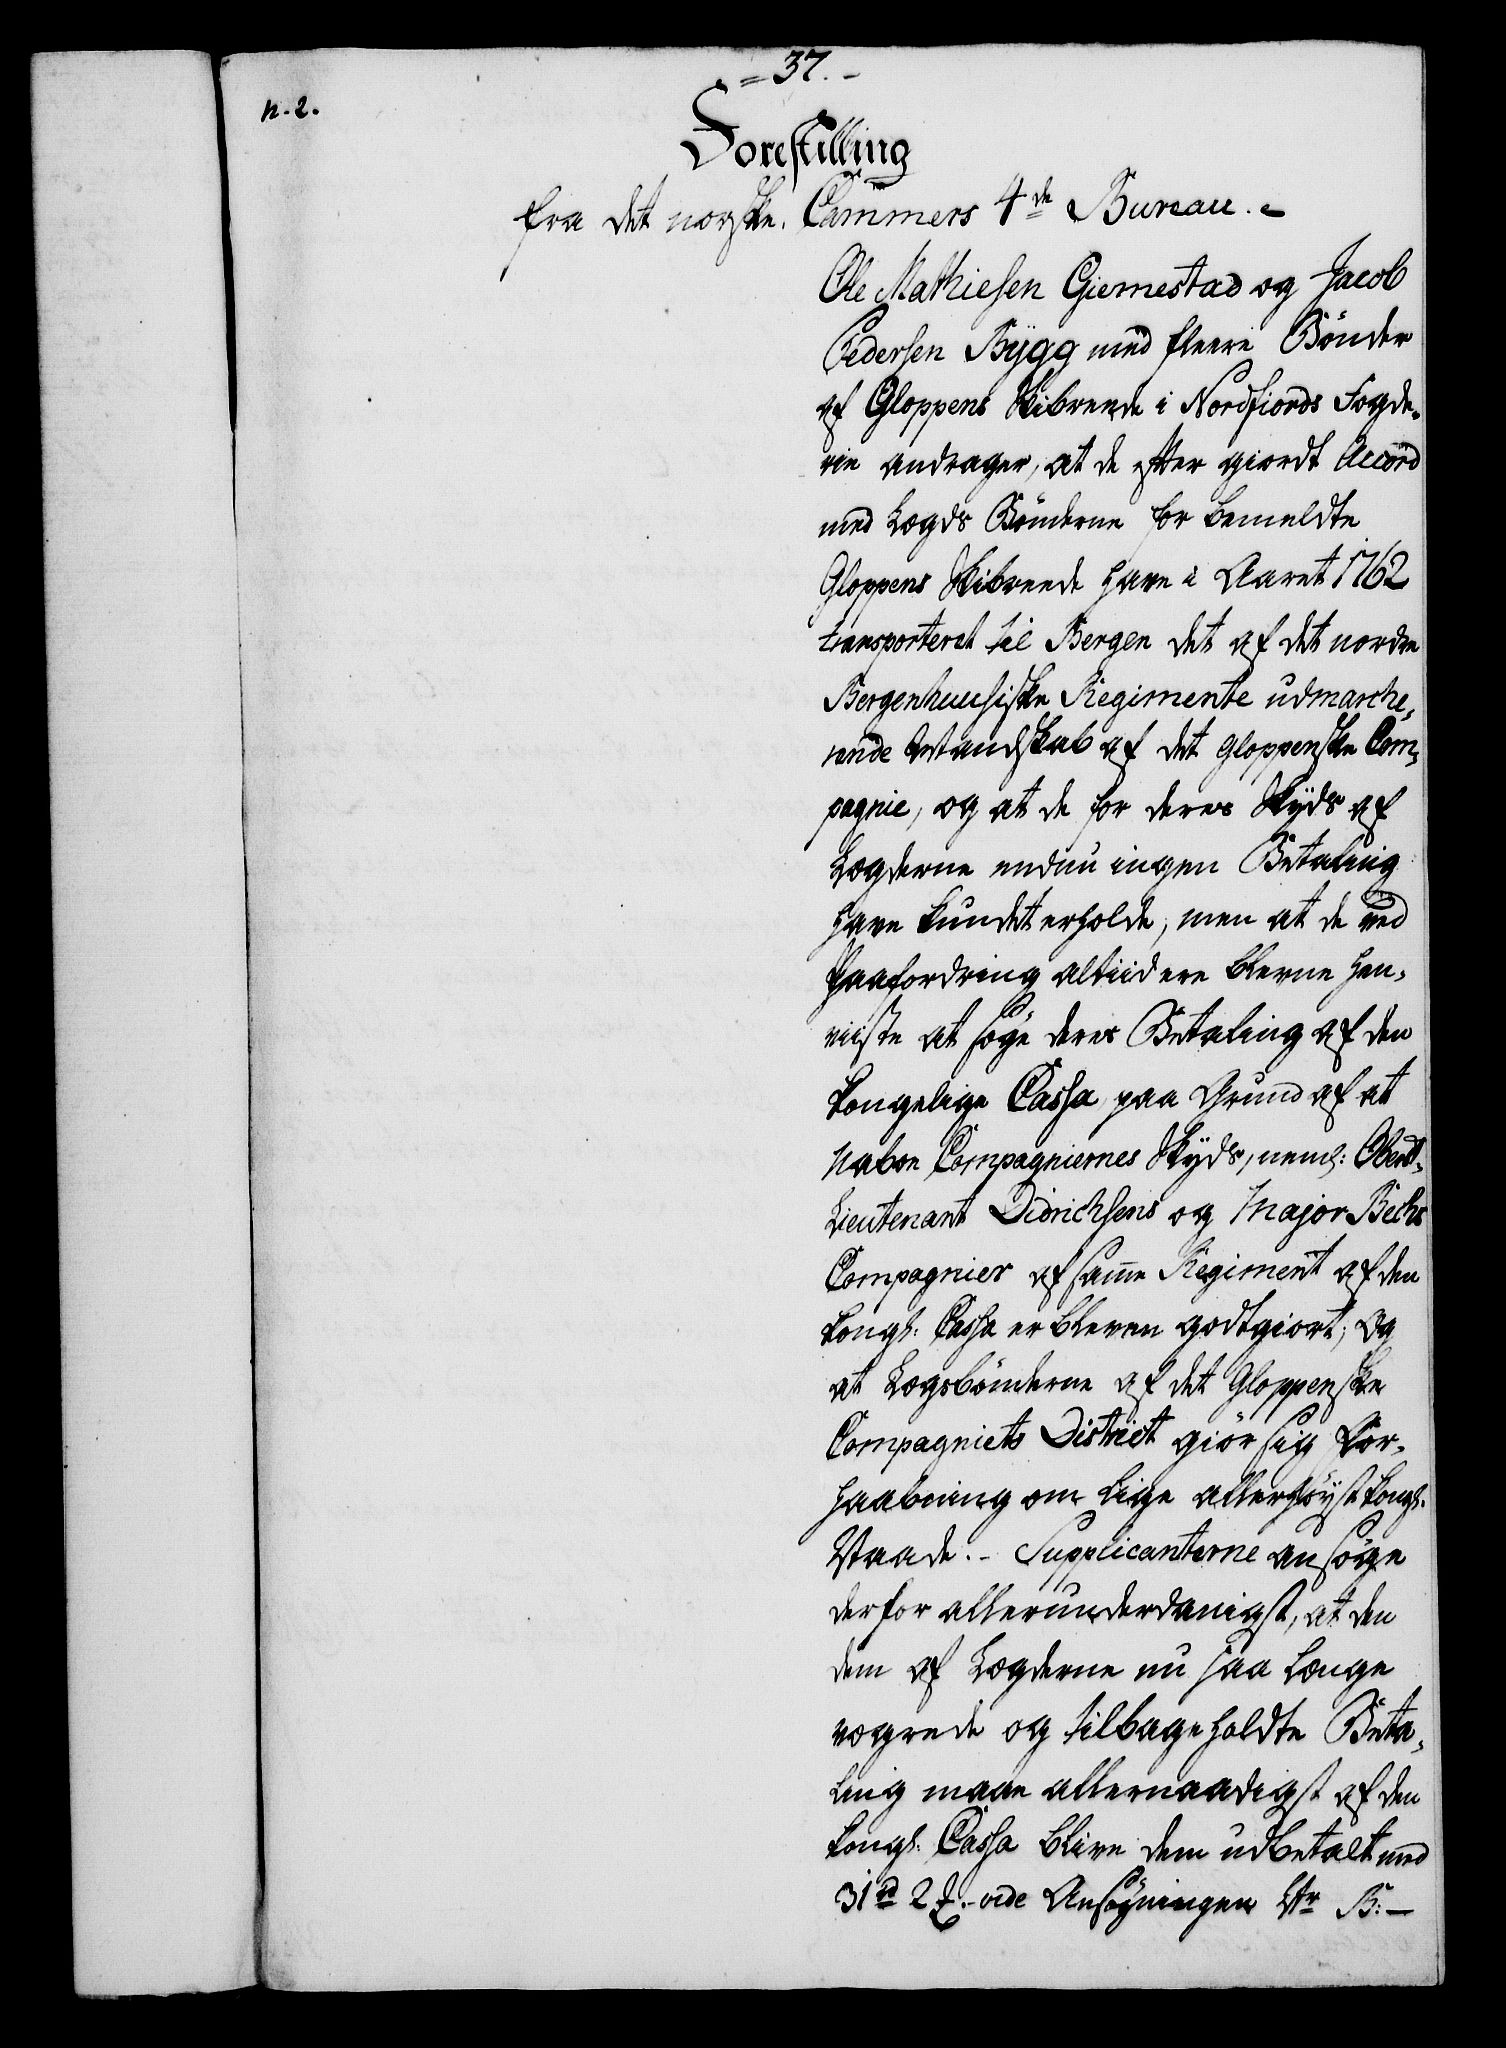 = 37. -
n. 2.
Forestilling
fra det norske Cammers 4de Bureau. -
Ole Mathiesen Giemestad og Jacob
Pedersen Bÿgg med fleere Bönder
af Gloppens Skibrende i Nordfiords Fogde-
rie andrager, at de efter giordt Accord
med Lægds Bönderne for bemeldte
Gloppens Skibreede have i Aaret 1762
transporteret til Bergen det af det nordre
Bergenhuusiske Regimente udmarche-
rende Mandskab af det gloppenske Com-
pagnie, og at de for deres Skyds af
Lægderne endnu ingen Betaling
have kundet erholde, men at de ved
Paafordring altiid ere blevne hen-
viiste at söge deres Betaling af den
kongelige Cassa paa Grund af at
Naboe Compagniernes Skyds, neml: Oberst-
Lieutenant Didrichsens og Major Bechs
Compagnier af samme Regiment af den
kongl: Cassa er bleven godtgiort; Og
at Lægsbönderne af det Gloppenske
Compagniets District giör sig For-
haabning om lige allerhöyst kongl:
Naade. - Supplicanterne ansöge
derfor allerunderdanigst, at den
dem af Lægderne nu saa længe
vægrede og tilbageholdte Beta-
ling maae allernaadigst af den
kongl: Cassa blive dem udbetalt med
31 rd 2 ß. - vide Ansögningen Ltr B: -